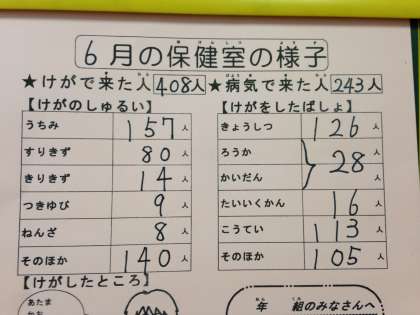 6月の保健室の様子
★けがで来た人 408人 ★病気で来た人 243人
【けがのしゅるい】 【けがをしたばしょ】
うちみ 157人 きょうしつ 126人
すりきず 80人 ろうか
きりきず 14人 かいだん 28人
つきゆび 9人 たいいくかん 16人
ねんざ 8人 こうてい 113人
そのほか 140人 そのほか 105人
【けがしたところ】
あたま
年 組のみなさんへ